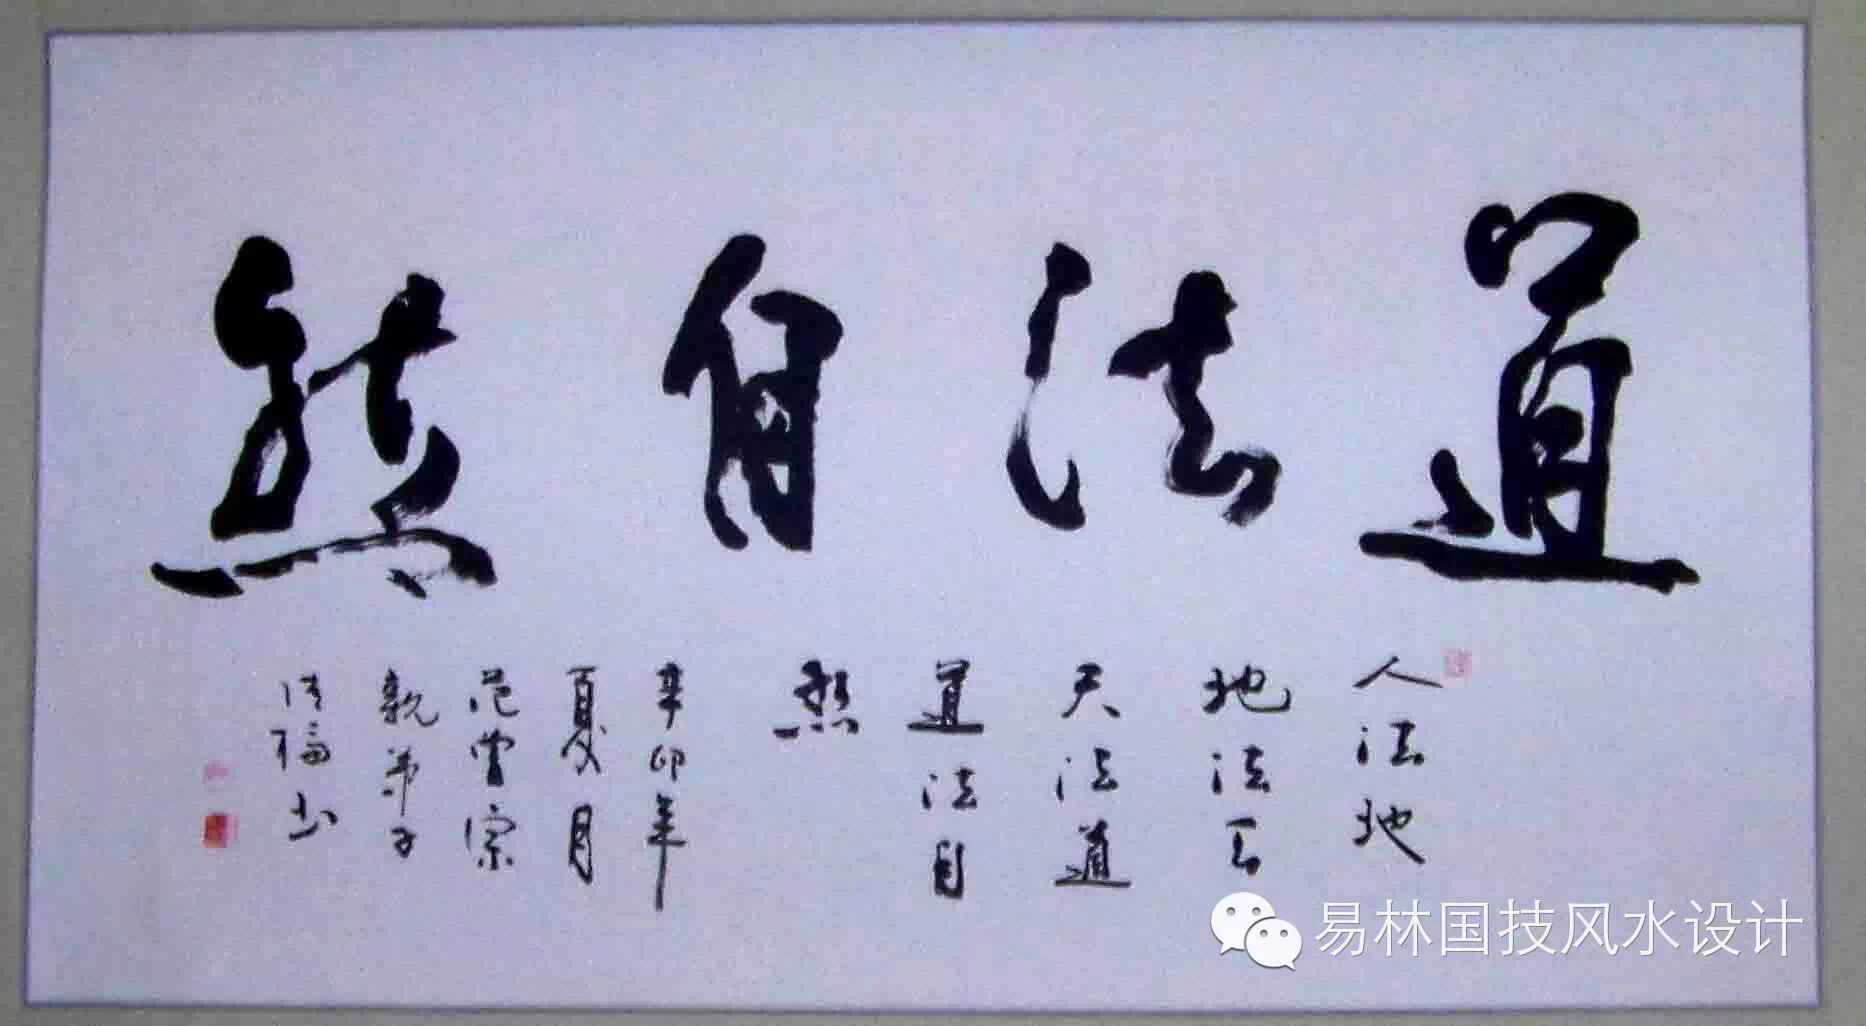 道法自然
人法地
地法天
天法道
道法自
然
辛卯年
夏月
范曾宗
亲弟子
福书
易林国技风水设计